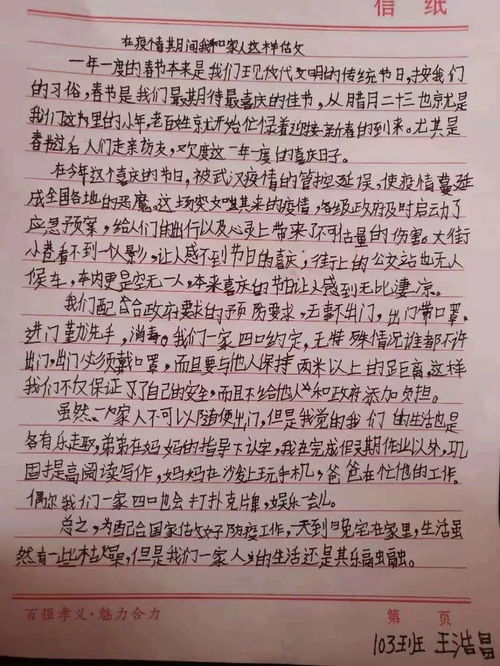 信 纸
在疫情其月间我和家人这样估文
一年一度的春节本来是我们王现代文明的传统节日,按我们
的习俗,春节是我们最期待最喜庆的佳节,从腊月二十三也就是
我们这里的小年,老百姓就开始忙绿着迎接新春的到来。尤其是
春节过后人们走亲访友,欢度这一年一度的喜庆日子。
在今年这个喜庆的节日,被武汉疫情的管控延误,使疫情蔓延
成全国各地的恶魔。这场突如其来的疫情,各级政府及时启动了
应急预案,给人们的出行以及心灵上带来了不可估量的伤害。大街
小巷看不到一个人影,让人感不到节日的喜庆;街上的公交站也无人
候车,车内更是空无一人,本来喜庆的节日让人感到无比凄凉。
我们配合政府要求的预防要求,无事不出门,出门带口罩。
进门勤洗手,消毒。我们一家四口约定,无特殊情况谁都不许
出门,出门必须戴口罩,而且要与他人保持两米以上的距离。这样
我们不仅保证了自己的安全,而且不给他人和政府添加负担。
虽然一家人不可以随便出门,但是我觉的我们的生活也是
各有乐趣,弟弟在妈妈的指导下认字,我在完成假期作业以外,巩
固提高阅读写作,妈妈在沙发上玩手机,爸爸在忙他的工作。
偶尔我们一家四口也会打扑克牌,娱乐一会儿。
总之,为配合国家做好防疫工作,天到晚宅在家里,生活虽
然有一些枯燥,但是我们一家人的生活还是其乐融融。
百强孝义·魅力合力
第 页
103班 王浩昌